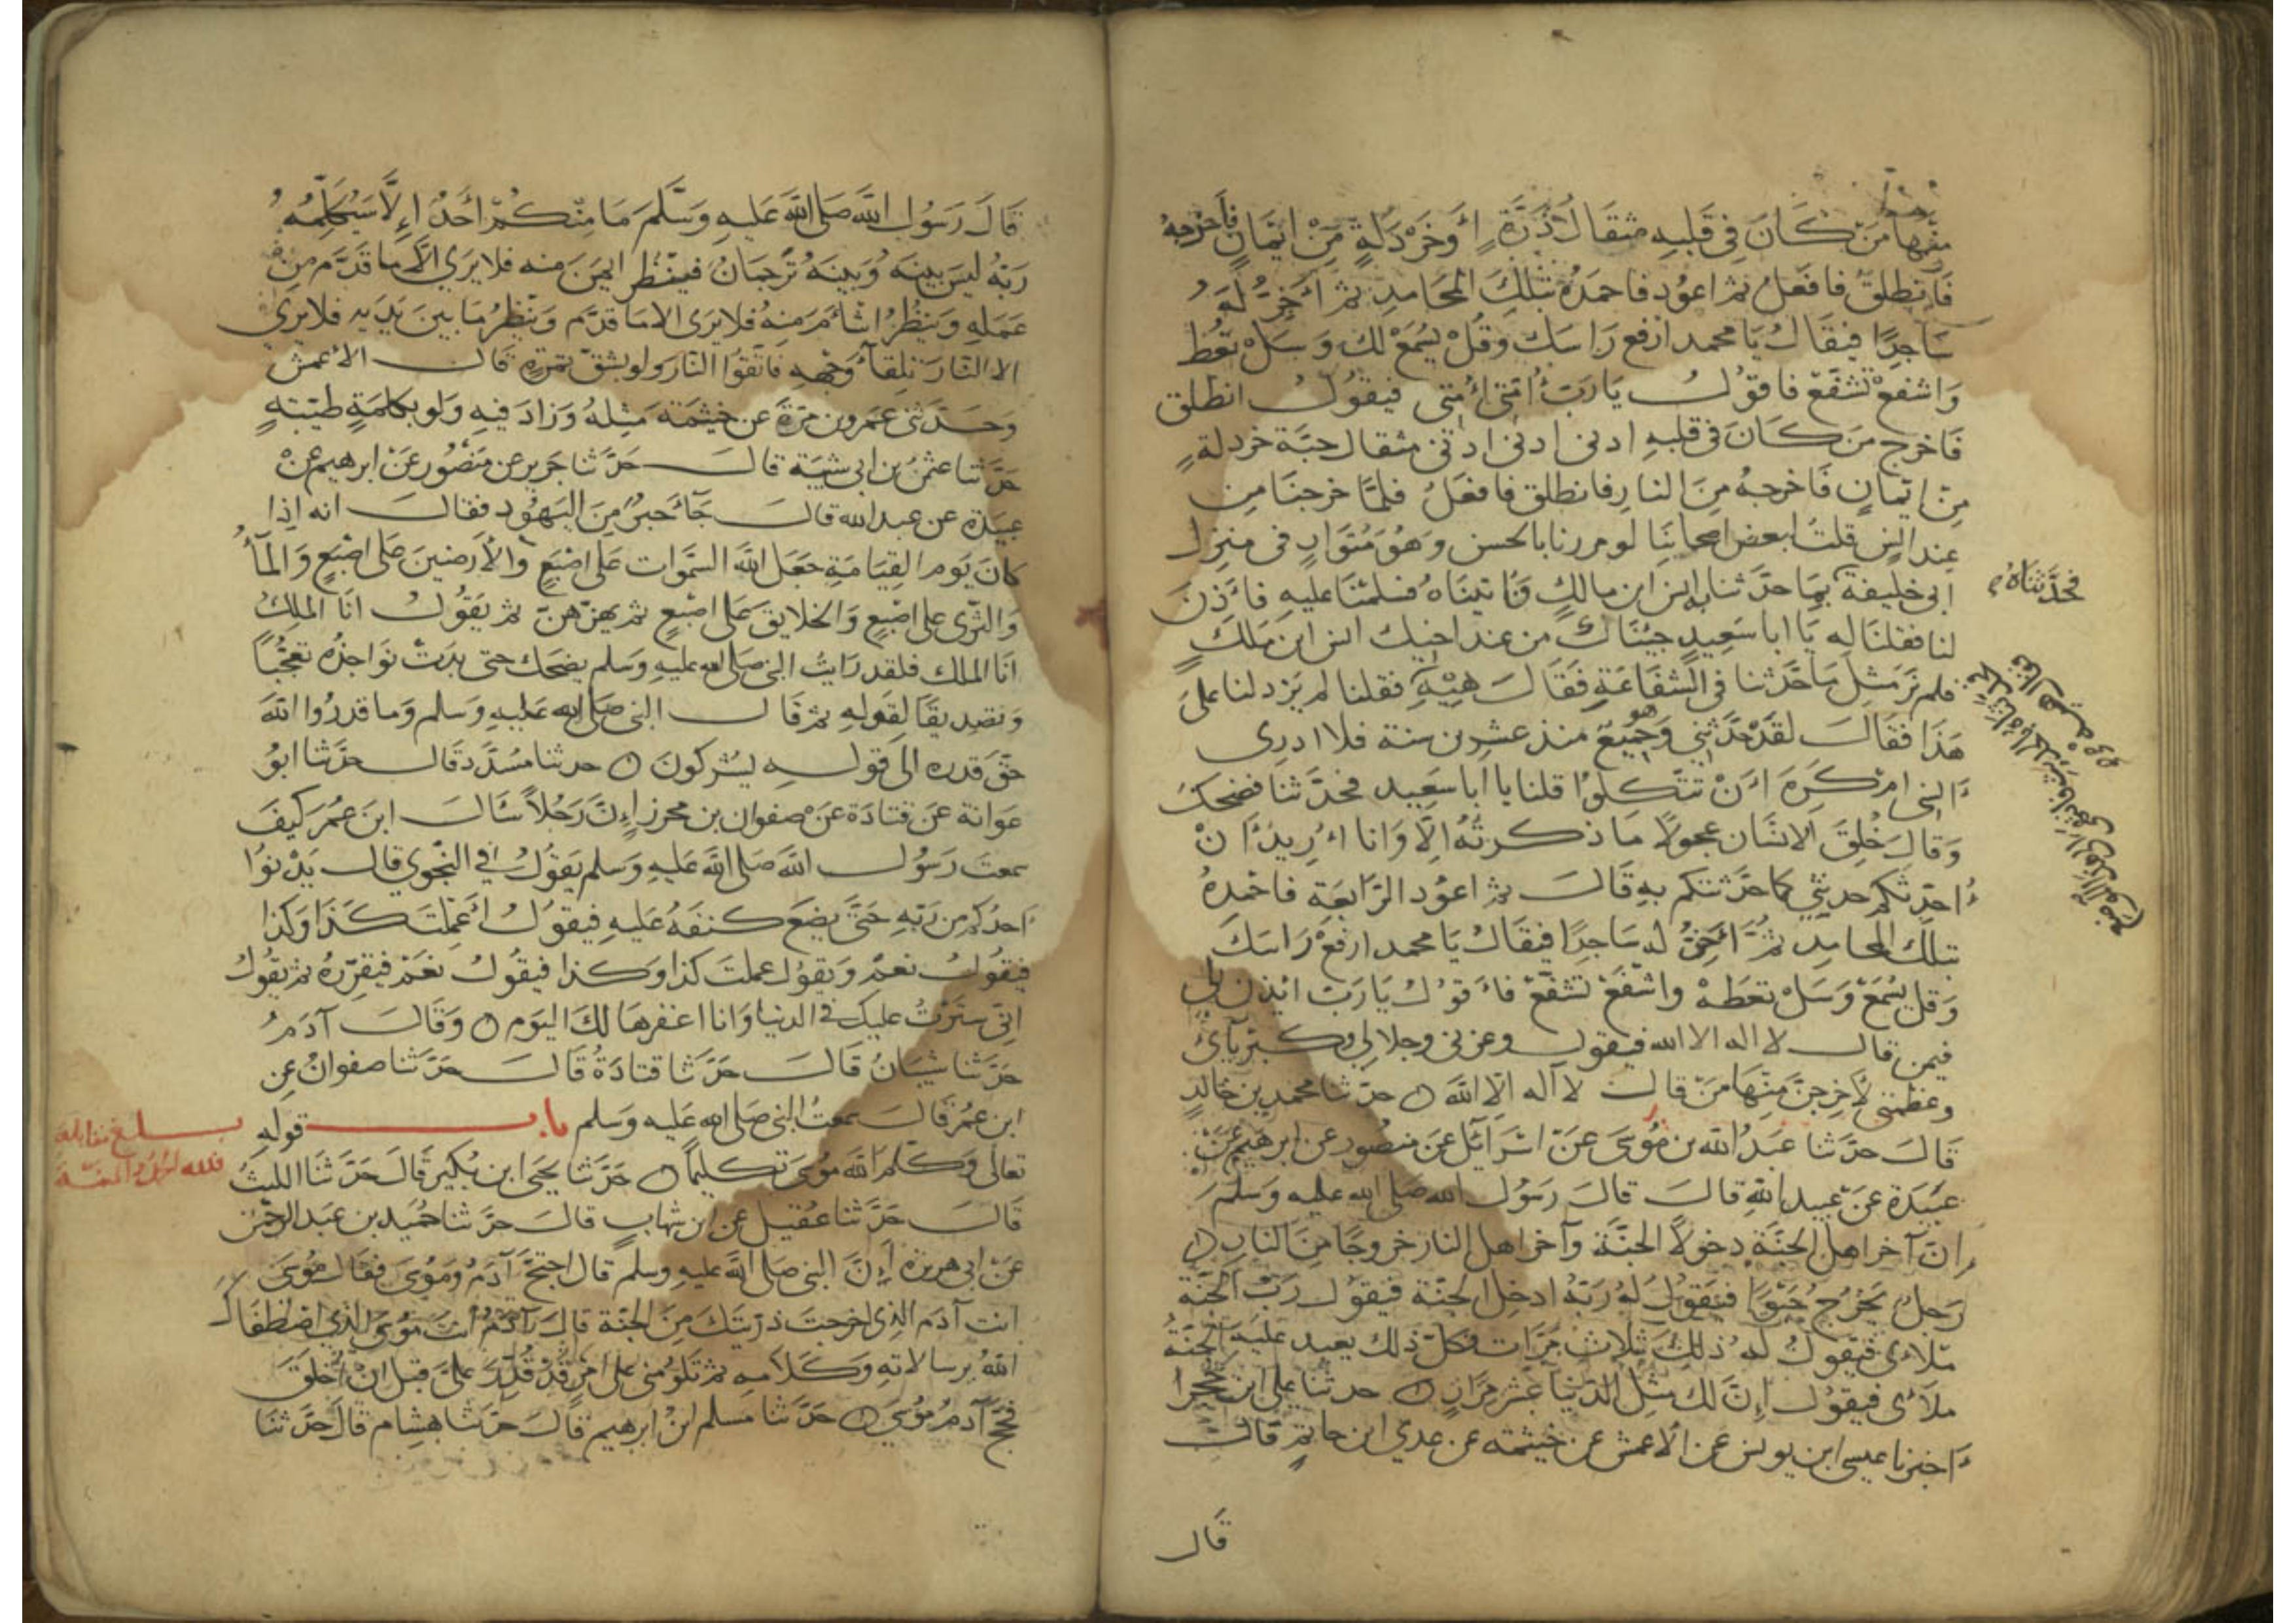 منها من كَانَ فِي قَلبِهِ مثقَالُ ذَرَّةٍ أَوخَرْدَلَةٍ مِّنْ ايمَانٍ فأخرجهُ
فَانطلقُ فافعَلُ ثم اعوُد فاحمَدُهُ بتلِكَ المحَامدِ ثم أخِرُّ لَهُ
سَاجِدًا فيقَالُ يَا محمد ارفع رَاسَك وقُلْ يُسْمَعْ لك وَسَلْ تعُط
وَاشفعْ تشفَّعْ فاقوُل يَارَبّ أُمّتى أُمتى فيقوُل انطلق
فَاخرج مَن كَانَ فى قلبهِ ادنى ادنى ادنى مثقال حبّة خردلةٍ
مِنْ ايمَانٍ فَاخرجهُ مِنَ النارِ فانطلق فافعَلُ فلمَّا خرجنَا مِن
عِند انس قلتُ لبعض اصحابنَا لو مررنا بالحسن وَهُوَ مُتَوَارٍ فى منزل
ابى خليفة بمَا حدّثنا به انس ابن مالكٍ فَاتينَاهُ فسلمْنَا عليهِ فأذنَ
فحدَّثناهُ
لنا فقلنَا له يَا ابا سَعِيدٍ جِئنَاكَ من عند اخيك انس ابن مَلكٍ
فلم نَرَ مثلَ مَا حَدّثنا فى الشفَاعَةِ فَقَالَ هِيْهِ فقلنا لم يَزِد لنا على
هَذا فقَالَ لقَدْ حَدَّثنِي وَهُو جَمِيعٌ منذ عشرين سنة فلا ادرى
أَنسى ام كَرِهَ أَنْ تتّكلوُا قلنا يا ابا سَعِيد فحدَّثنا فضحِكَ
وَقالَ خُلِقَ الانسَان عجولًا مَا ذكرتُهُ الِّا وَانا أُرِيدُ ان
أُحدّثكم حدثنى كما حَدّثتكم بهِ قَالَ ثم اعوُد الرّابعَةِ فاحمدهُ
بتلكَ المحامدِ ثُمَّ أَخِرُّ لهُ سَاجِدًا فيقَالُ يَا محمد ارفعْ رَاسَكَ
وَقل يُسْمَعْ وَسَلْ تعطَهْ واشفَعْ تشفَّعْ فأقوُلُ يَارَبّ ائذن لِي
فيمن قال لا اله الا الله فيقول وعزتى وجلالى وكبريآئى
وعظمتى لأخرِجنَّ مِنهَا مَن قالَ لآ اله الّا الله ۝ حدّثنا محمد بن خالدٍ
قَالَ حدَّثنا عبَيدُ الله بن مُوسَى عَنْ اسْرَائيل عَن منصُور عن ابرهيم عَنْ
عبَيدَة عَنْ عبيد اللهِ قالَ قالَ رَسُول الله صَلى الله عليه وَسَلمَ
انَّ آخر اهل الجنَّةِ دخولًا الجنّةَ وآخر اهل النار خروجًا مِنَ النارِ
رَجلٌ يَخرُج حَبْوًا فيَقوُلُ لهُ رَبّهُ ادخلِ الجنّةَ فيقوُل رَبّ الجنّة
ملاءى فيَقولُ لهُ ذلِكَ ثلاث مَرَّات فكلّ ذلك يعيد عليهَ الجنّةُ
ملأى فيقوُل إِنَّ لك مِثلَ الدّنيَا عَشْر مِرَارٍ ۝ حدثنا على ابن حُجْر
أخبرنا عيسى ابن يونس عن الأعمش عن خيثمة عن عدي ابن حاتمٍ قال
قَال
قَالَ رَسُول اللهِ صَلى اللهُ عَليهِ وَسَلَّمَ مَا مِنْكُمْ احَدٌ إِلَّا سَيُكَلِّمُهُ
رَبّهُ ليسَ بينَهُ وَبَينَهُ تُرَجمَانُ فينظُر ايمَنَ منه فلا يرَى الَّا ما قَدَّم مِنْ
عَمَلهِ وَيَنظُرُ اشأمَ مِنهُ فلا يَرَى الا مَا قدَّم وَيَنظرُ مَا بينَ يَدَيهِ فلا يَرَى
الا النَّارَ تلِقآء وَجْهِهِ فاتَّقوُا النّارَ ولو بشقّ تمرَةٍ قَال الأعمش
وَحَدَّثنى عمَرو بن مرّةَ عن خيثَمَة مِثلهُ وَزادَ فيهِ وَلو بكلمَةٍ طيّبَةٍ
حَدّثنا عثمنُ بن ابى شيبَة قالَ حَدّثنا جَرير عن مَنصُور عَنْ ابرهيم عَنْ
عبيدَة عن عبد الله قالَ جَآءَ حَبرٌ مِنَ اليَهُود فقالَ انه اِذا
كانَ يَوم القِيَامَةِ جَعَل اللهُ السَّموَات عَلى اصْبَعٍ وَالأَرضِينَ عَلى اصْبَعٍ وَالمَآءُ
وَالثرى على اصْبَعٍ وَالخلايقَ عَلى اصْبَعٍ ثم يهزّهنَّ ثم يَقُولُ انَا الملِكُ
انَا الملك فلقد رَايتُ النبى صَلى الله عليه وَسلم يضحَك حتى بدَتْ نوَاجذُهُ تعَجُّبًا
وَتصِديقًا لِقَولهِ ثم قَال النبى صَلى الله عَليهِ وَسَلم وَمَا قدروا اللهَ
حَقّ قدره الى قوله يشركونَ ۝ حدثنا مُسَدَّد قَالَ حدّثنا ابوُ
عوَانة عَن قتادَة عَنْ صفوان بن محرز إِنَّ رَجُلاً سَأَلَ ابنَ عُمَر كَيفَ
سمعتَ رَسُول الله صَلى اللهَ عليهِ وَسَلم يَقوُلُ في النّجوى قالَ يَدْنوُا
احدُكم من رَبّهِ حَتَّى يضعَ كنفَهُ عَليهِ فيقوُلُ أَعَملتَ كَذَا وَكَذا
فيقوُل نعمْ وَيَقوُل عملتَ كذا وَكذا فيقُولُ نعَمْ فيقرّرُهُ ثم يقوُلُ
انّى سترْتُ عليك فى الدنيا وَانا اغفرهَا لكَ اليَوم ۝ وَقَالَ آدَمُ
حَدّثنا شيبَانُ قَالَ حَدّثنا قتادَةُ قَالَ حَدّثنا صفوانُ عن
ابن عمُر قَالَ سمعتُ النبى صَلى الله عَليه وَسلم باب قولهِ
بلغ مقابلة
تعَالى وَكلّم اللهَ مُوسَى تكليمًا ۝ حَدَّثنا يحيَى ابن بُكير قَالَ حَدّثنَا الليثُ
قَالَ حَدَّثنا عُقيل عن ابن شهاب قالَ حدّثنا حمُيد بن عَبد الرحمٰن
عَنْ ابى هريرة إِنَّ النبى صَلى اللهَ عليهِ وَسلم قال احتجّ آدَمُ وَمُوسَى فقَال مُوسَى
انت آدَم الذِى اخرجتَ ذرّيتَكَ مِنَ الجنّة قالَ آدَمُ انتَ مُوسَى الّذي اصْطفَاكَ
اللهُ برسالاتِه وَكَلَامِهِ ثم تلوُمُنى على امْرٍ قَدْ قُدّرَ عَلىَّ قبل انْ أُخلقَ
فحَجّ آدمُ مُوسَى ۝ حَدّثنا مسلم ابنُ ابرهيم قَالَ حَدّثنا هشِام قَالَ حَدّثنَا